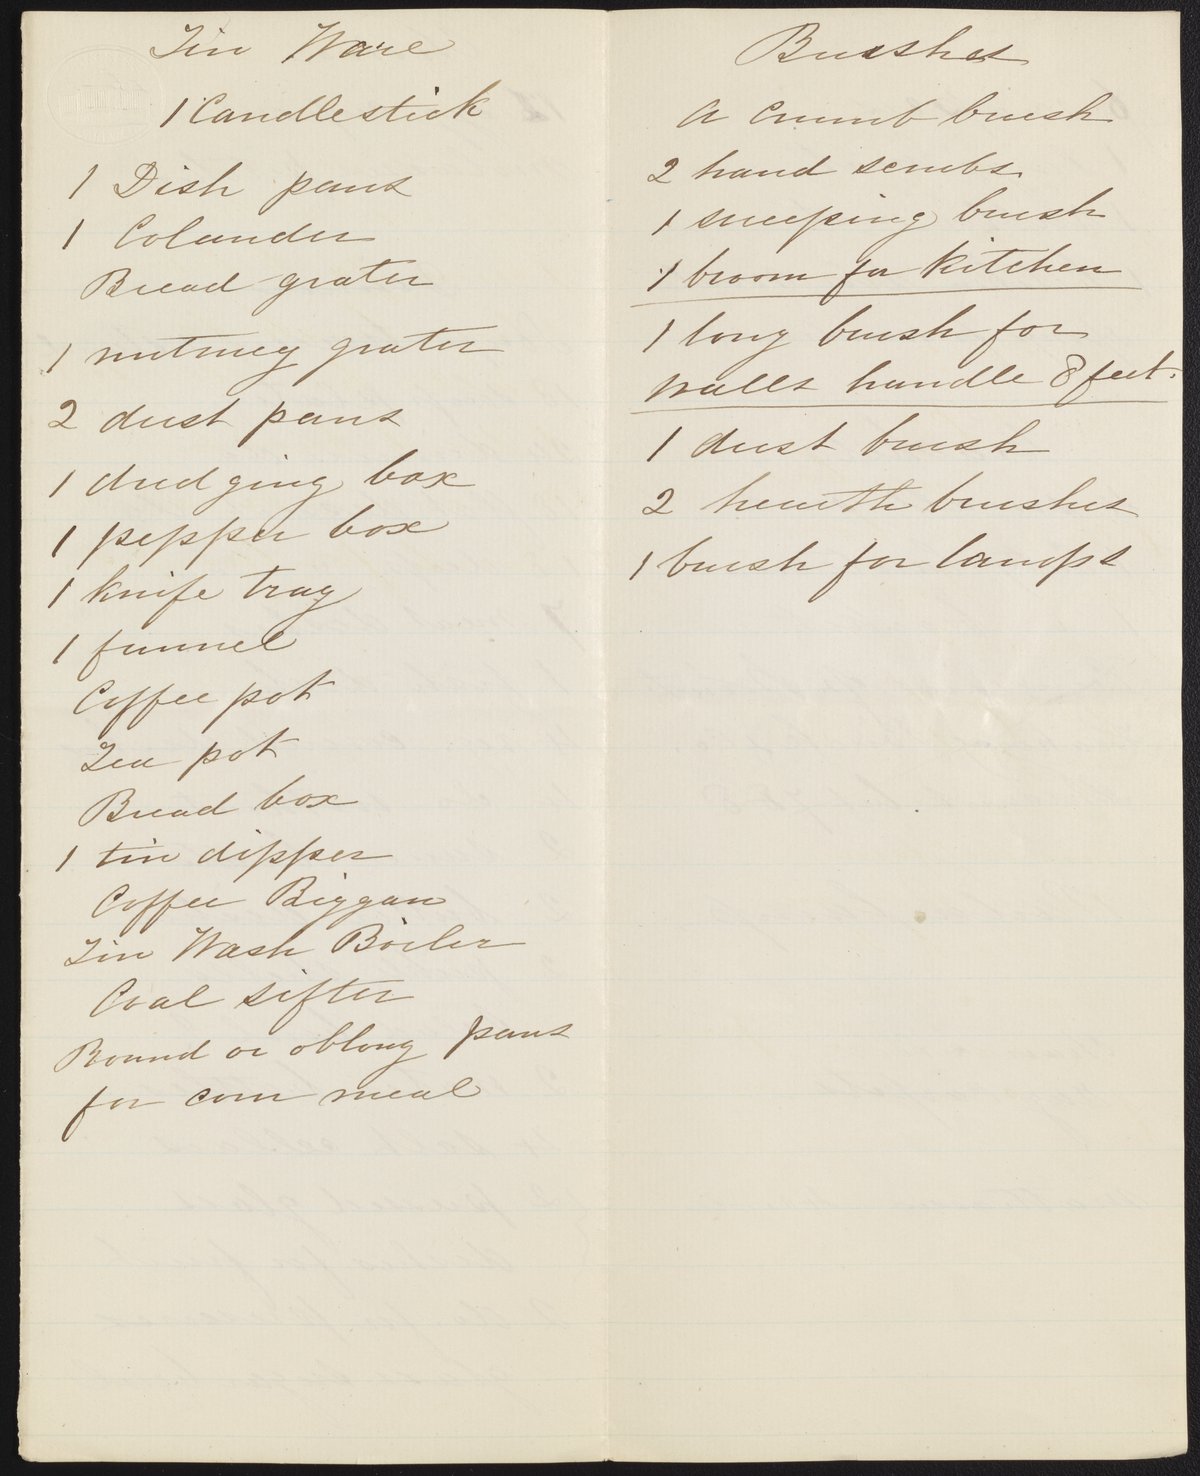 Tin Ware
1 Candlestick
1 Dish pans
1 Colander
Bread grater
1 nutmeg grater
2 dust pans
1 drudging box
1 pepper box
1 knife tray
1 funnel
Coffee pot
Tea pot
Bread box
1 tin dipper
Coffee Biggan
Tin Wash Boiler
Coal sifter
Round or oblong pans
for corn meal
Brushes
A Crumb brush
2 hand scrubs
1 sweeping brush
1 broom for Kitchen
1 long brush for
walls handle 8 feet.
1 dust brush
2 hearth brushes
1 brush for lamps